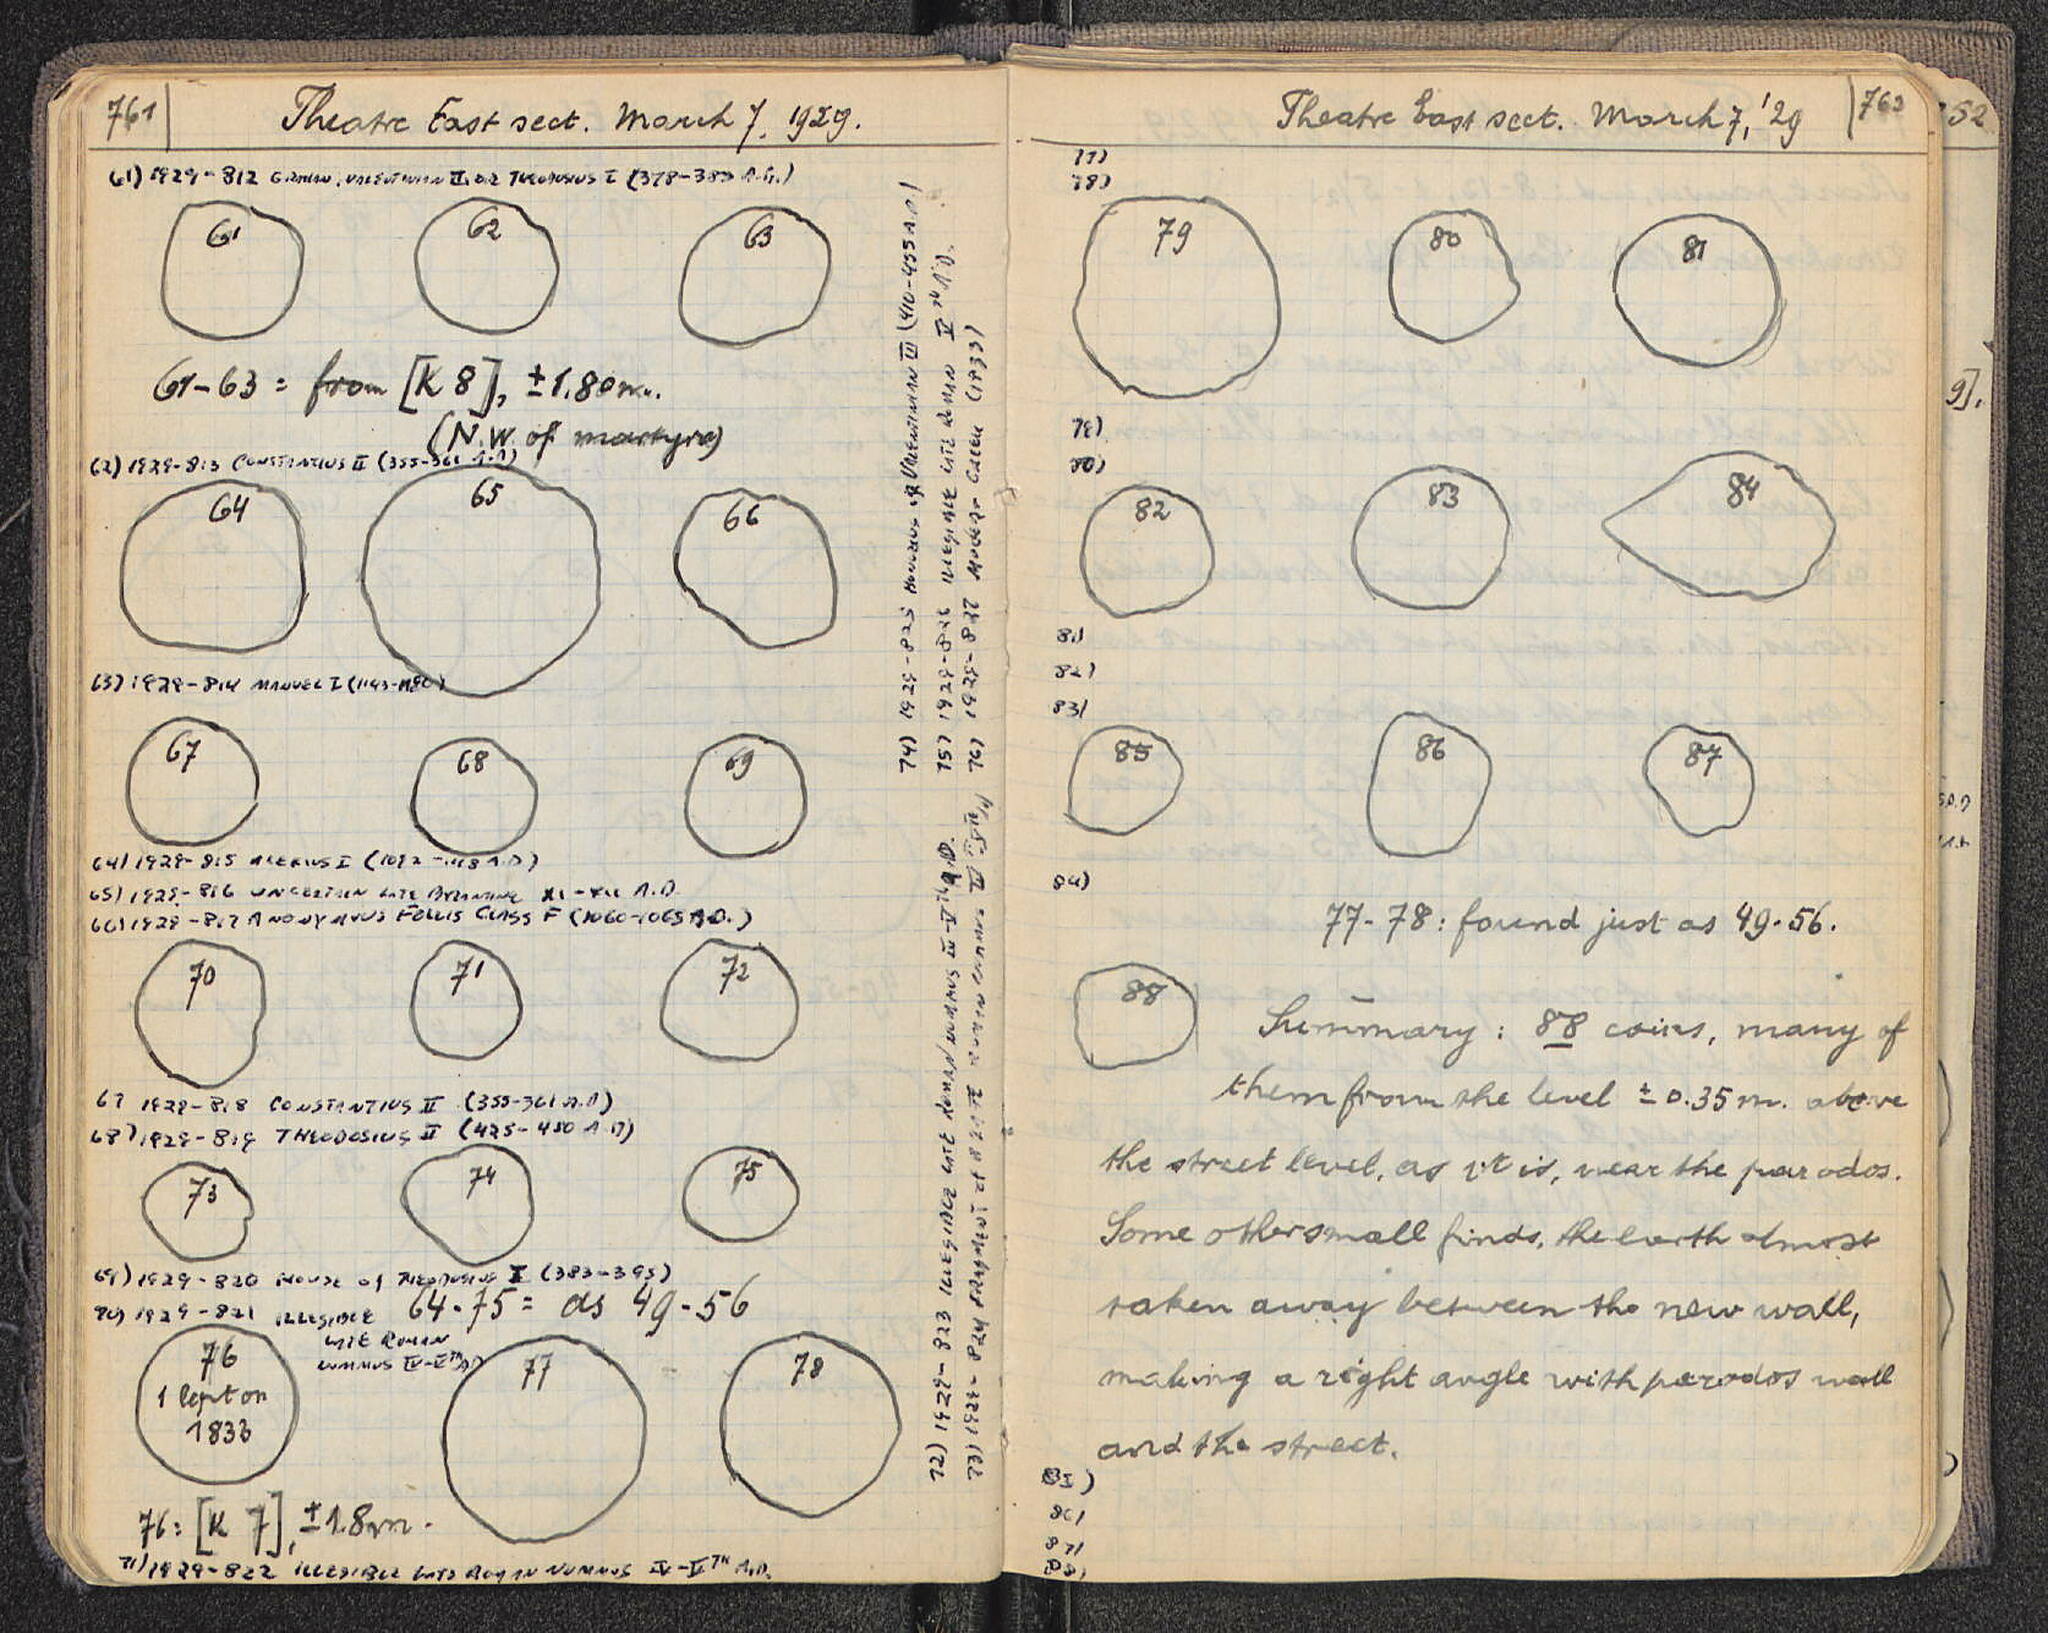 761
Theatre East sect. March 7, 1929.
61) 1929-812 GRATIAN, VALENTINIAN II, OR THEODOSIUS I (378-383 A.D.)
61 62 63
61-63 = from [K 8], ±1.80 m.
(N.W. of martyro)
62) 1929-813 CONSTANTIUS II (355-361 A.D)
64 65 66
63) 1929-814 MANUEL I (1143-1180)
67 68 69
64) 1929-815 ALEXIUS I (1092-1118 A.D)
65) 1929-816 UNCERTAIN LATE BYZANTINE XI-XII A.D.
66) 1929-817 ANONYMOUS FOLLIS CLASS F (1060-1065 A.D.)
70 71 72
67 1929-818 CONSTANTIUS II (355-361 A.D)
68) 1929-819 THEODOSIUS II (425-450 A.D)
73 74 75
69) 1929-820 HOUSE OF THEODOSIUS I (383-395)
64-75 = as 49-56
70) 1929-821 ILLEGIBLE
LATE ROMAN
NUMMUS IV-VTH AD
76 77 78
1 lepton
1833
76: [K 7], ±1.8 m.
71) 1929-822 ILLEGIBLE LATE ROMAN NUMMUS IV-VTH A.D.
72) 1929-823 ILLEGIBLE LATE ROMAN NUMMUS III-VTH A.D.
73) 1929-824 FRAGMENT OF
74) 1929-825 HONORIUS OR VALENTINIAN III (410-455 A.D)
75) 1929-826 ILLEGIBLE LATE ROMAN VTH A.D.
76) 1929-827 MODERN GREEK (1833)
Theatre East sect. March 7, '29
762
52
77)
78)
79 80 81
9].
79)
80)
82 83 84
81)
82)
83)
85 86 87
84)
77-78: found just as 49-56.
88
Summary: 88 coins, many of
them from the level ±0.35 m. above
the street level, as it is, near the parodos.
Some other small finds, the earth almost
taken away between the new wall,
making a right angle with parodos wall
and the street.
85)
86)
87)
88)